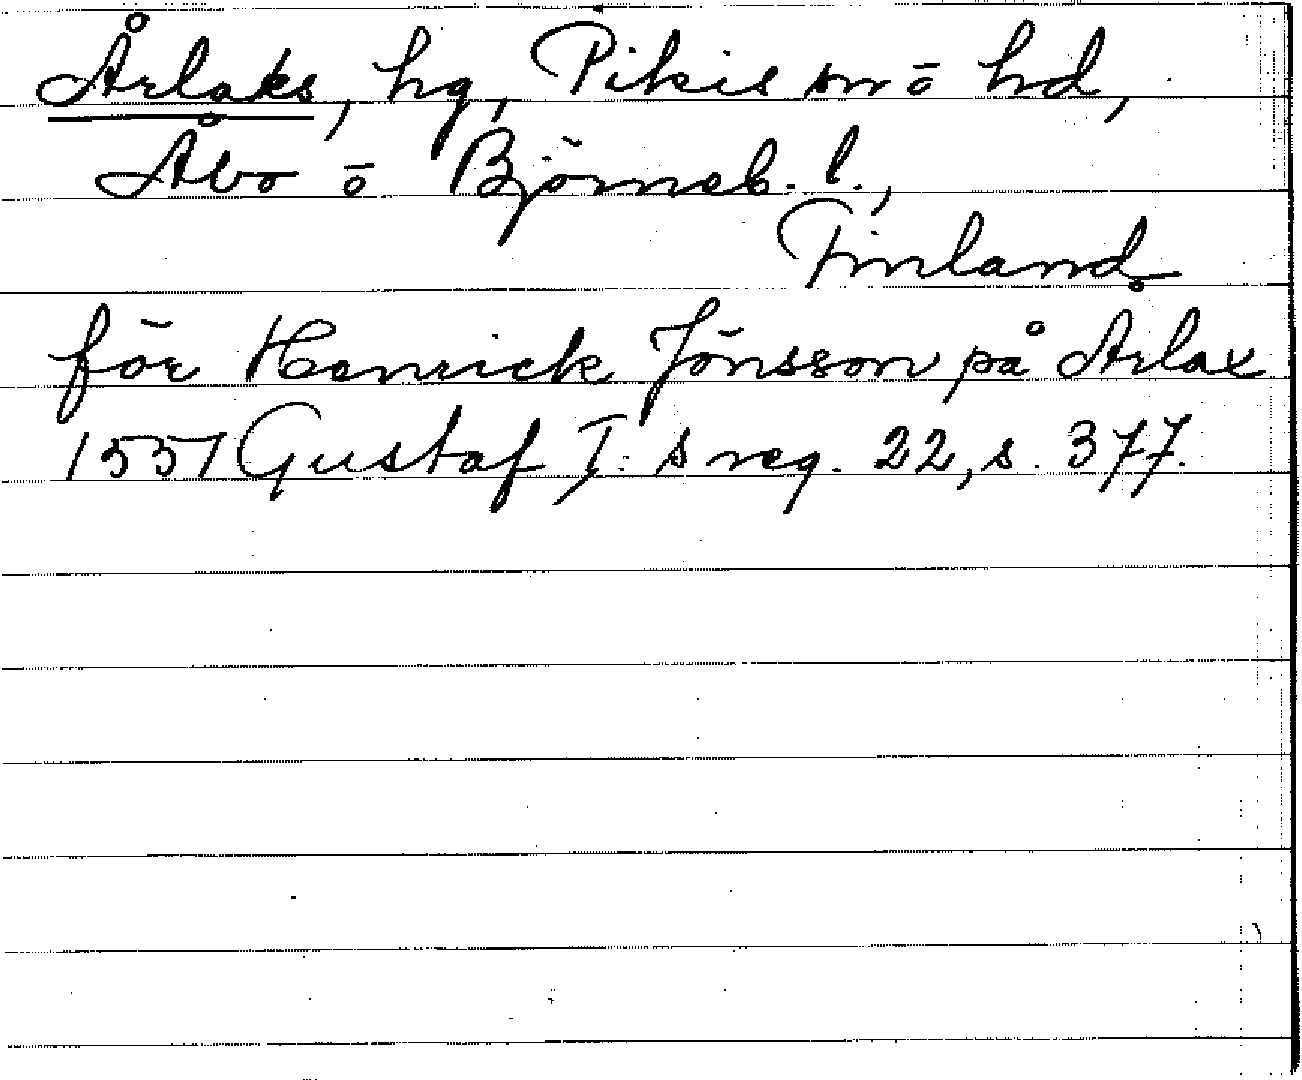 Årlaks, hg, Pikis sn ō hd,
Åbo ō Björneb. l.,
Finland
för Henrick Jönsson på Årlax
1551 Gustaf I: s reg. 22, s. 377.